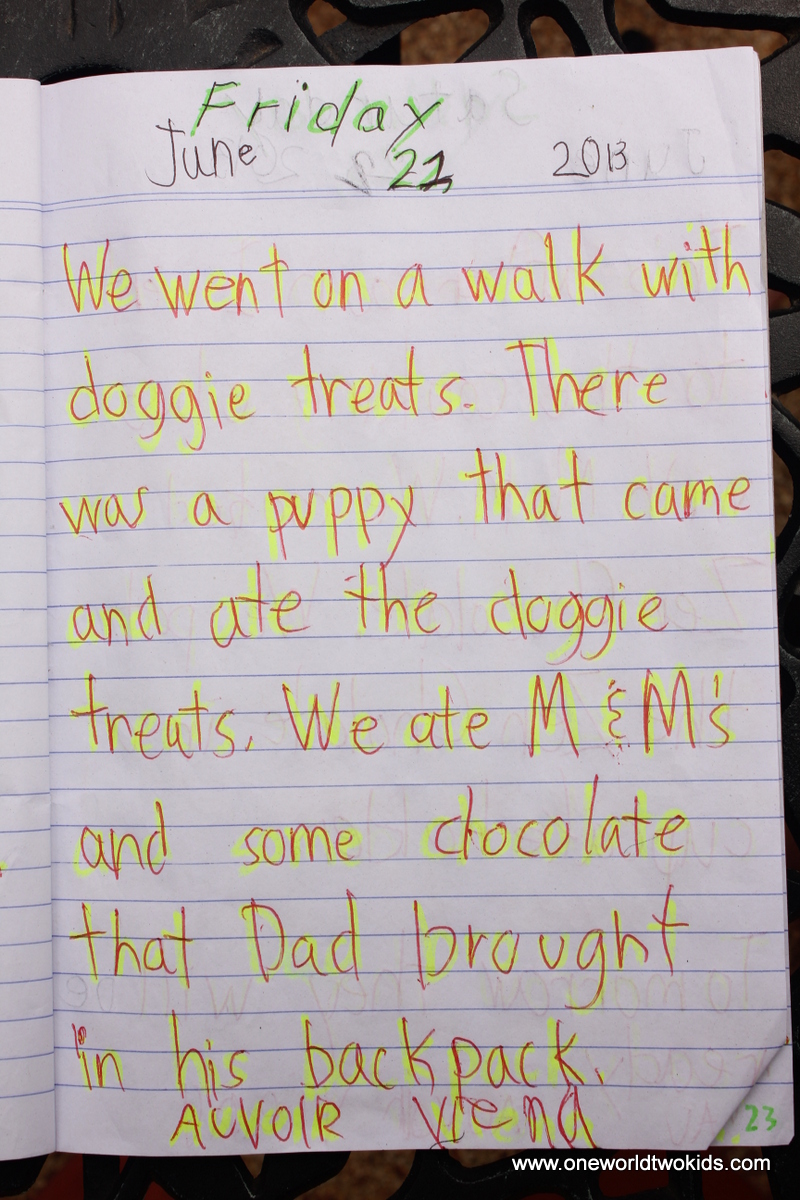 Friday
June 21 2013
We went on a walk with
doggie treats. There
was a puppy that came
and ate the doggie
treats. We ate M & M's
and some chocolate
that Dad brought
in his backpack.
AUVOIR
23
www.oneworldtwokids.com